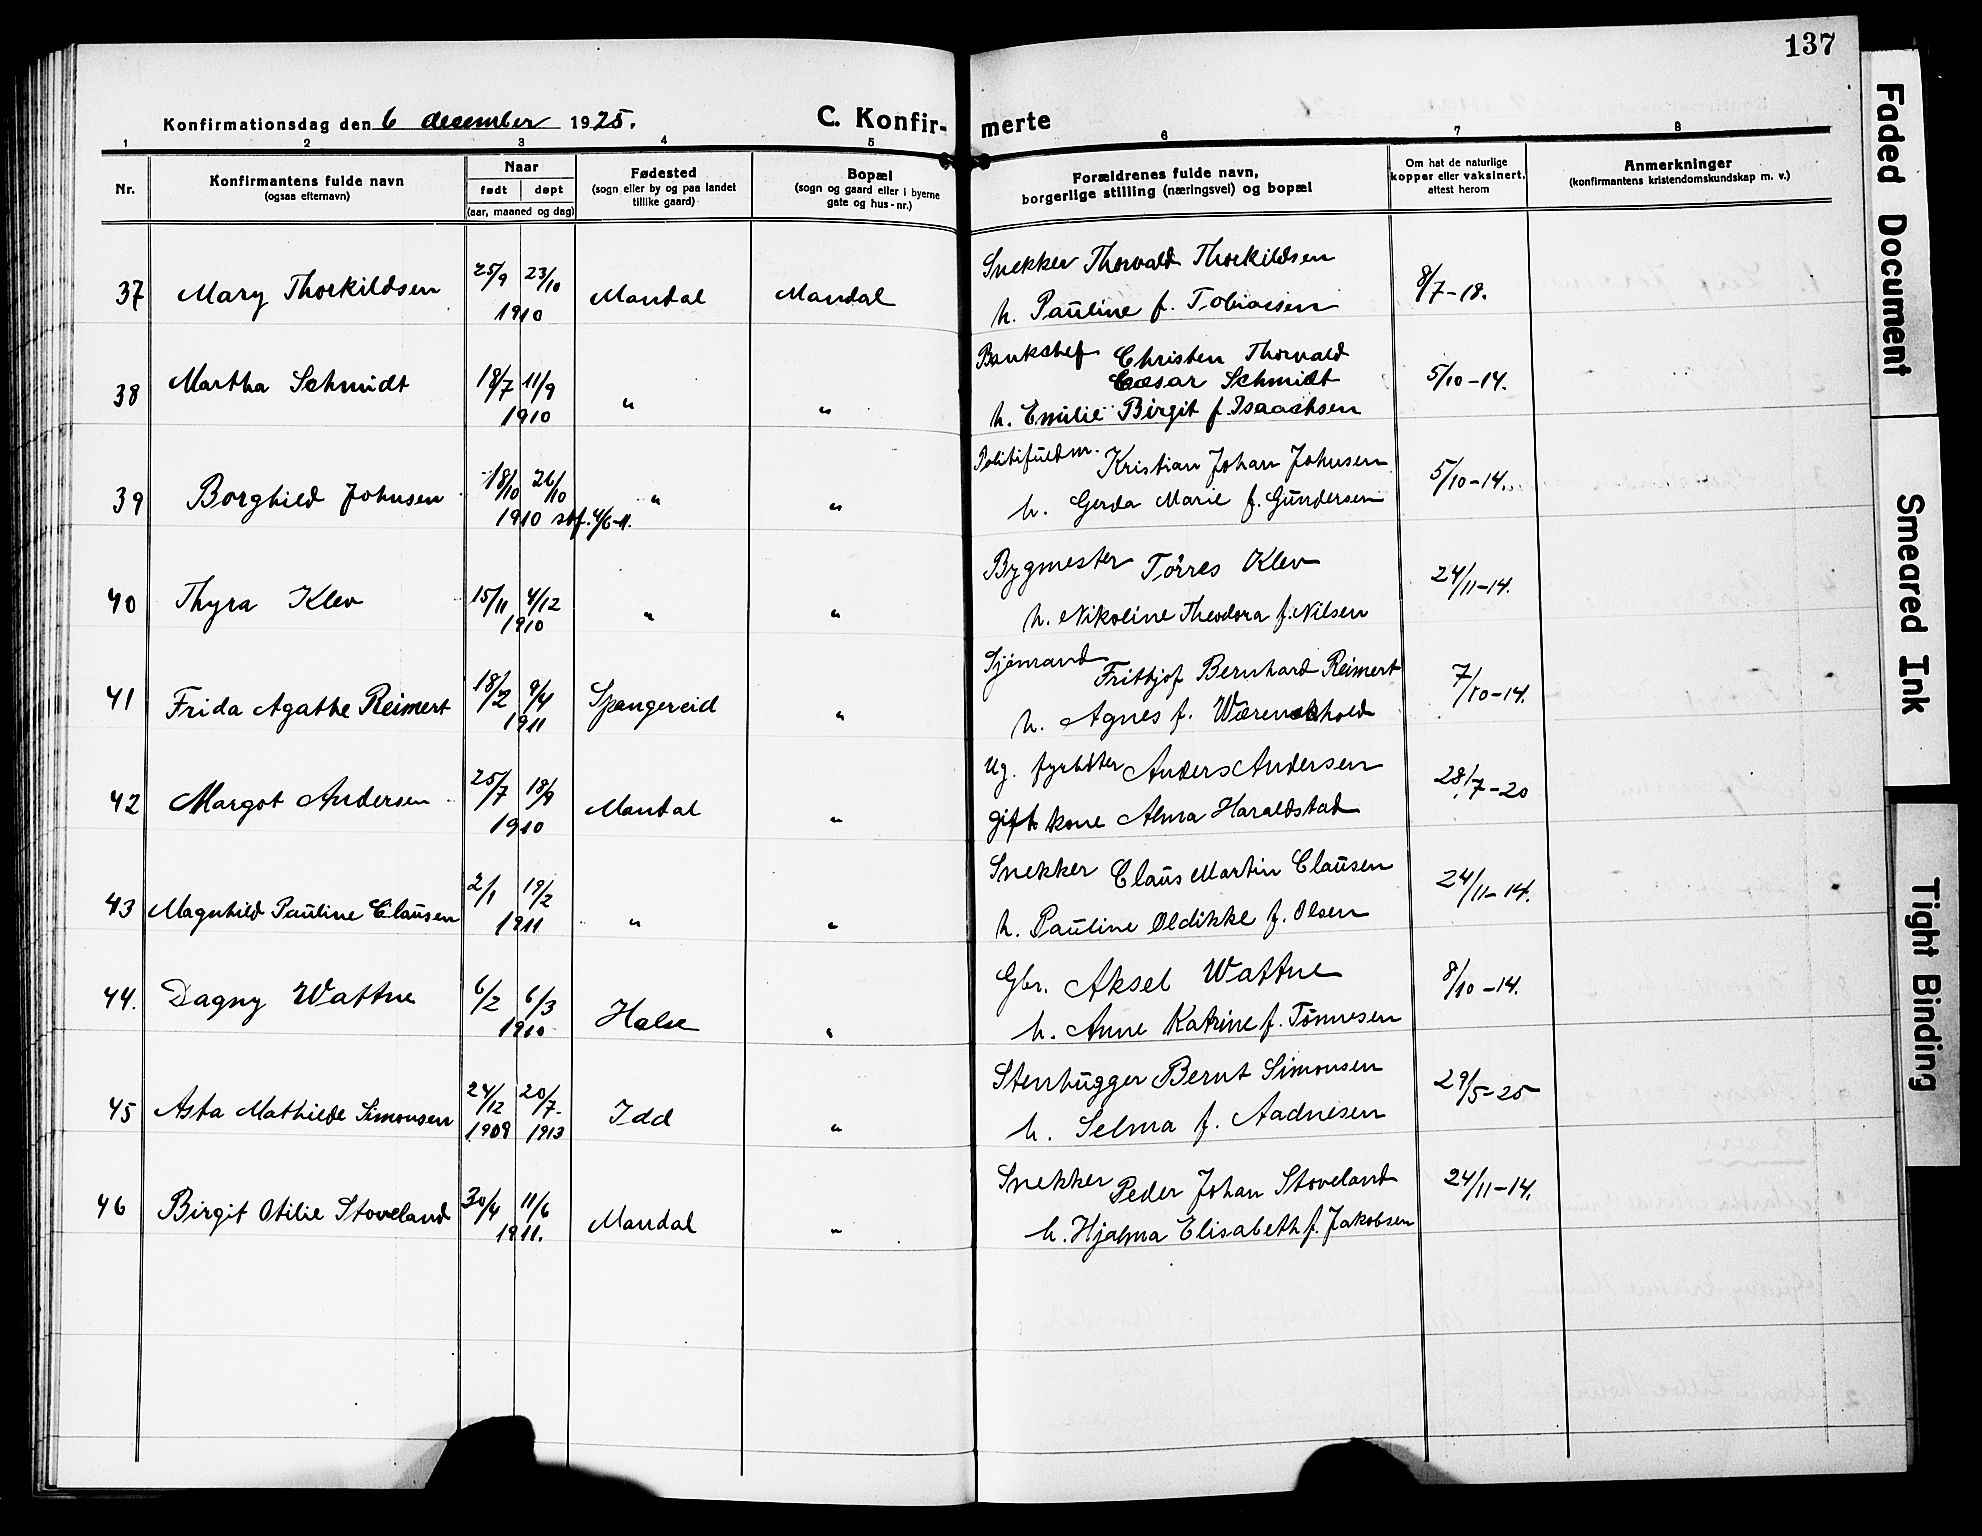 137
Konfirmationsdag den 6 december 1925.
C. Konfir- merte
1 2 3 4 5 6 7 8
Nr.
Konfirmantens fulde navn
(ogsaa efternavn)
Naar
født døpt
(aar, maaned og dag)
Fødested
(sogn eller by og paa landet
tillike gaard)
Bopæl
(sogn og gaard eller i byerne
gate og hus-nr.)
Forældrenes fulde navn,
borgerlige stilling (næringsvei) og bopæl
Om hat de naturlige
kopper eller vaksinert,
attest herom
Anmerkninger
(konfirmantens kristendomskundskap m. v.)
37 Mary Thorkildsen 25/9 23/10 1910 Mandal Mandal
Snekker Thorvald Thorkildsen
h. Pauline f. Tobiasen
8/7-18.
38 Martha Schmidt 18/7 11/9 1910 " "
Bankchef Christen Thorvald
Cæsar Schmidt
h. Emilie Birgit f. Isaachsen
5/10-14.
39 Borghild Johnsen 18/10 26/10 1910 stf. 4/6-11. " "
Politifuldm. Kristian Johan Johnsen
h. Gerda Marie f. Gundersen
5/10-14.
40 Thyra Klev 15/11 4/12 1910 " "
Bygmester Tørres Klev
h. Nikoline Theodora f. Nilsen
24/11-14.
41 Frida Agathe Reimert 18/2 9/4 1911 Spangereid "
Sjømand Fritjof Bernhard Reimert
h. Agnes f. Wærenskhold
7/10-14.
42 Margot Andersen 25/7 18/9 1910 Mandal "
Ug. fyrbøter Anders Andersen
gift kone Alma Haraldstad
28/7-20
43 Magnhild Pauline Clausen 2/1 19/2 1911 " "
Snekker Claus Martin Clausen
h. Pauline Oldikke f. Olsen
24/11-14.
44. Dagny Wattne 6/2 6/3 1910 Halse "
Gbr. Aksel Wattne
h. Anne Katrine f. Tønnesen
8/10-14.
45 Asta Mathilde Simonsen 24/12 1909 20/7- 1913 Idd "
Stenhugger Bernt Simonsen
h. Selma f. Aadnesen
29/5-25
46 Birgit Otilie Stoveland 30/4 11/6 1911. Mandal "
Snekker Peder Johan Stoveland
h. Hjalma Elisabeth f. Jakobsen
24/11-14.
Faded Document
Smeared Ink
Tight Binding